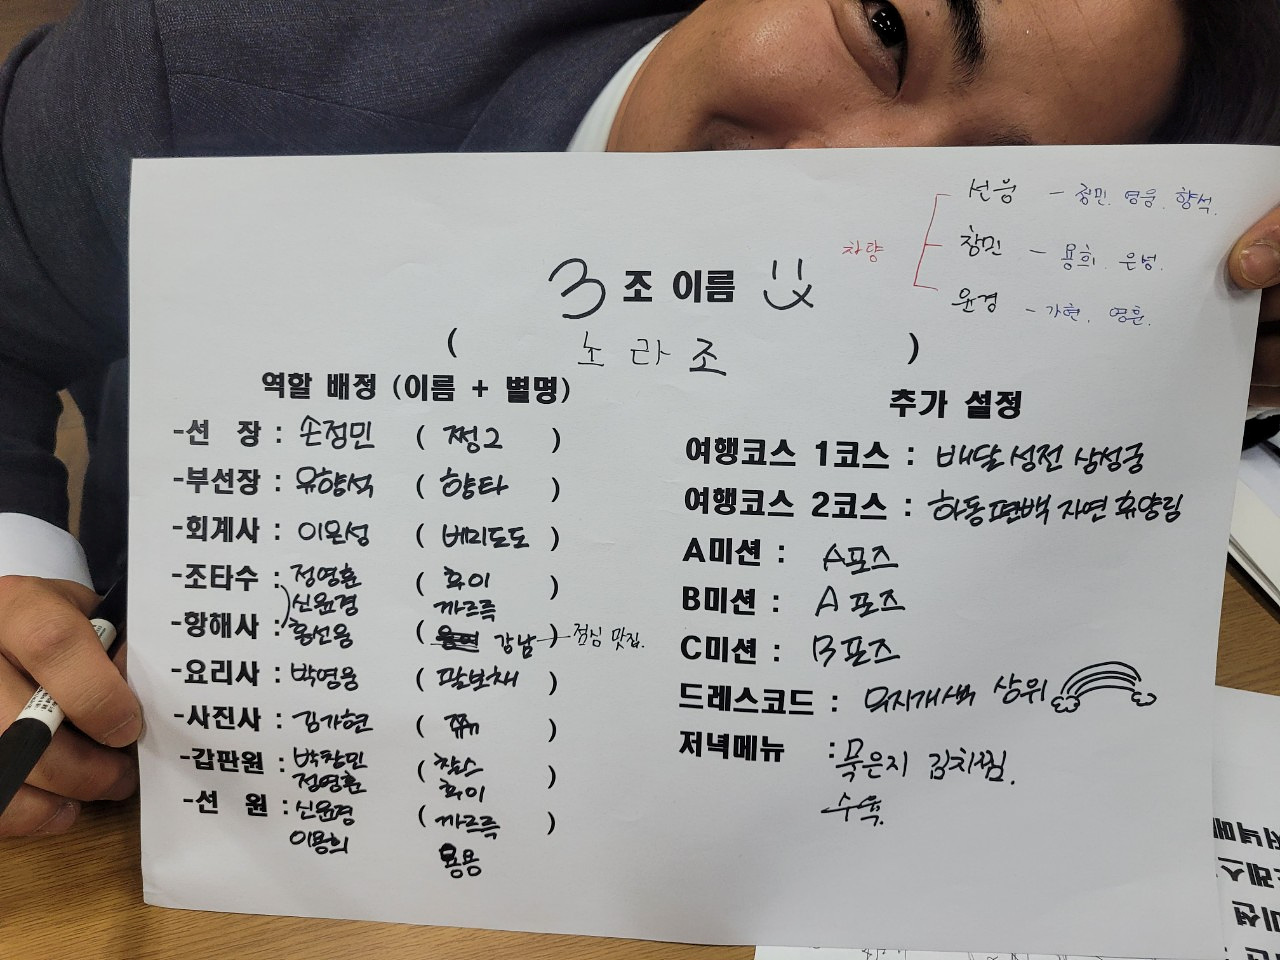 선웅 - 정민. 영웅. 향석.
차량
창민 - 용희. 은성.
윤경 - 가현. 영훈.
3조 이름
( 노라조 )
역할 배정 (이름 + 별명)
-선 장 : 손정민 ( 쩡2 )
-부선장 : 유향석 ( 향타 )
-회계사 : 이은성 ( 베리도도 )
-조타수 : 정영훈 ( 후이 )
신윤경 까르륵
-항해사 : 황선웅 ( 강남 ) 점심 맛집.
-요리사 : 박영웅 ( 팔보채 )
-사진사 : 김가현 ( 쀼 )
-갑판원 : 박창민 ( 창스 )
정영훈 후이
-선 원 : 신윤경 ( 까르륵 )
이용희 용용
추가 설정
여행코스 1코스 : 배달성전 삼성궁
여행코스 2코스 : 하동편백 자연휴양림
A미션 : A포즈
B미션 : A포즈
C미션 : B포즈
드레스코드 : 무지개색 상위
저녁메뉴 : 묵은지 김치찜.
수육.